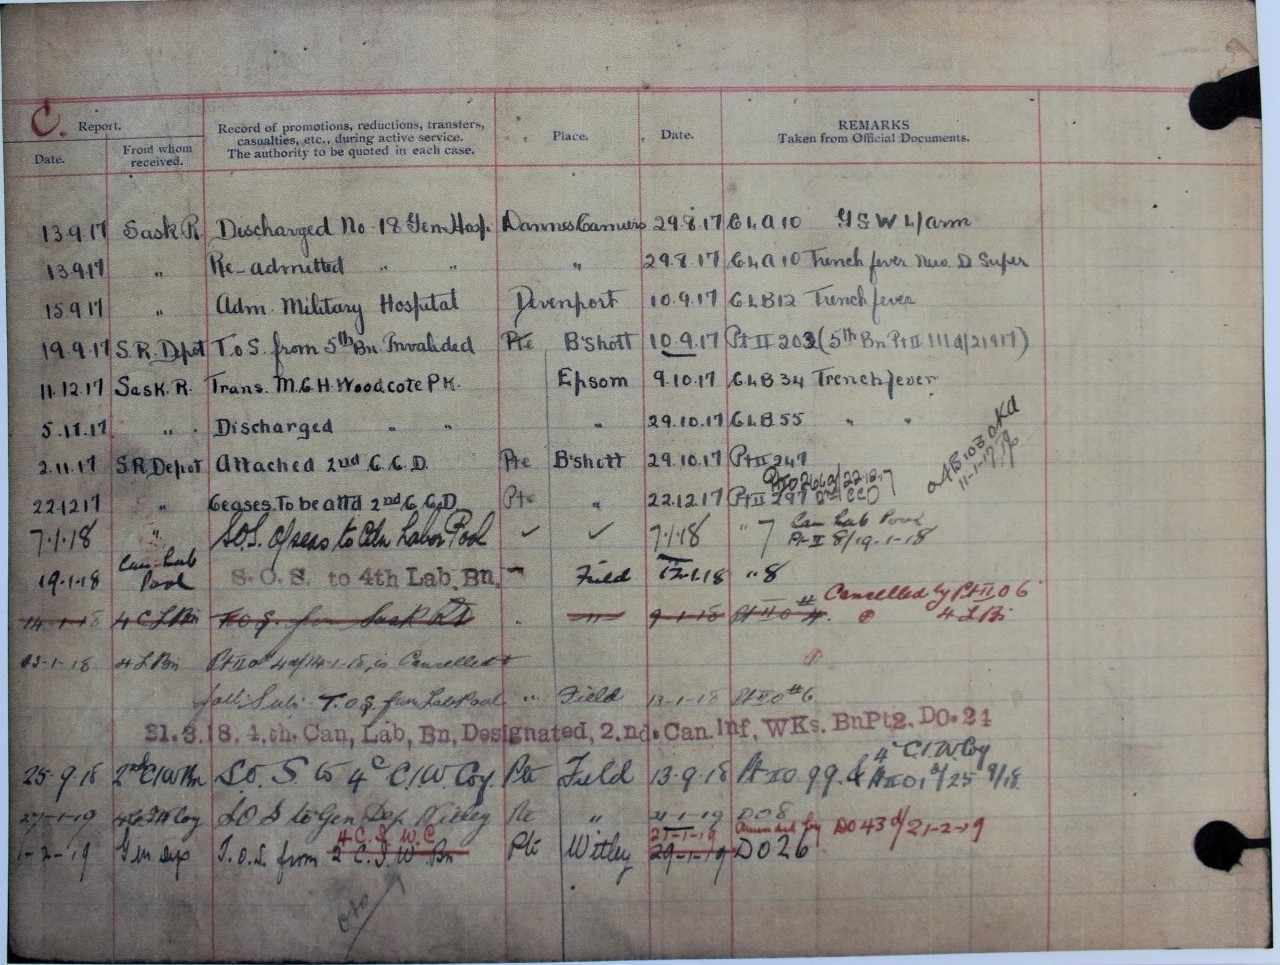 C. Report.
Date. From whom received.
Record of promotions, reductions, transfers, casualties, etc., during active service. The authority to be quoted in each case.
Place.
Date.
REMARKS
Taken from Official Documents.
13.9.17 Sask R. Discharged No. 18 Gen. Hosp. Dannes Camiers 29.8.17 C L A 10 G S W L/arm
13.9.17 " Re-admitted " " " 29.8.17 C L A 10 Trench fever D Super
15 9 17 " Adm. Military Hospital Devenport 10.9.17 C L B 12 Trench fever
19.9.17 S.R. Depot T.o.S. from 5th Bn Invalided Pte B'shott 10.9.17 Pt II 203 (5th Bn Pt II 111 d/21917)
11.12.17 Sask. R. Trans. M.C.H. Woodcote PK. Epsom 9.10.17 C L B 34 Trench fever
5.11.17 " Discharged " " " 29.10.17 C L B 55 " "
2.11.17 S.R. Depot Attached 2nd C.C.D. Pte B'shott 29.10.17 Pt II 247
22.12.17 " Ceases To be attd 2nd C.C.D Pte " 22.12.17 Pt II 297 2nd CCD
7.1.18 " S.O.S. o/seas to Cdn Labor Pool 7/1/18 " 7 Can Lab Pool
Pt-II 8/19-1-18
19.1.18 Can Lab Pool S.O.S. to 4th Lab. Bn. " Field 12.1.18 " 8
14-1-18 4 C L Bn T.O.S. from Sask Rt " 9-1-18 Pt II O # 4. Cancelled by Pt II O 6 4 L Bn
23-1-18 4 L Bn Pt II O 4 d/14-1-18, is Cancelled &
foll. Sub: T.O.S. from Lab Pool " Field 13-1-18 Pt II O #6
31.3.18. 4.th. Can, Lab, Bn, Designated, 2.nd. Can. Inf, WKs. Bn Pt2. DO. 21
25.9.18 2nd C/W Bn S.O.S to 4 C C/W. Coy. Pte Field 13-9-18 Pt II O. 99. & 4 C C/W Coy Pt II O 1 d/25 9/18
27-1-19 S O S to Gen Dep Witley Pte " 21-1-19 D O 8
1-2-19 Gen Dep T.O.S. from 2 C.I.W. Bn 4 C.I.W.C Pte Witley 29-1-19 21-1-19 D O 26 amended by DO 43 d/21-2-19